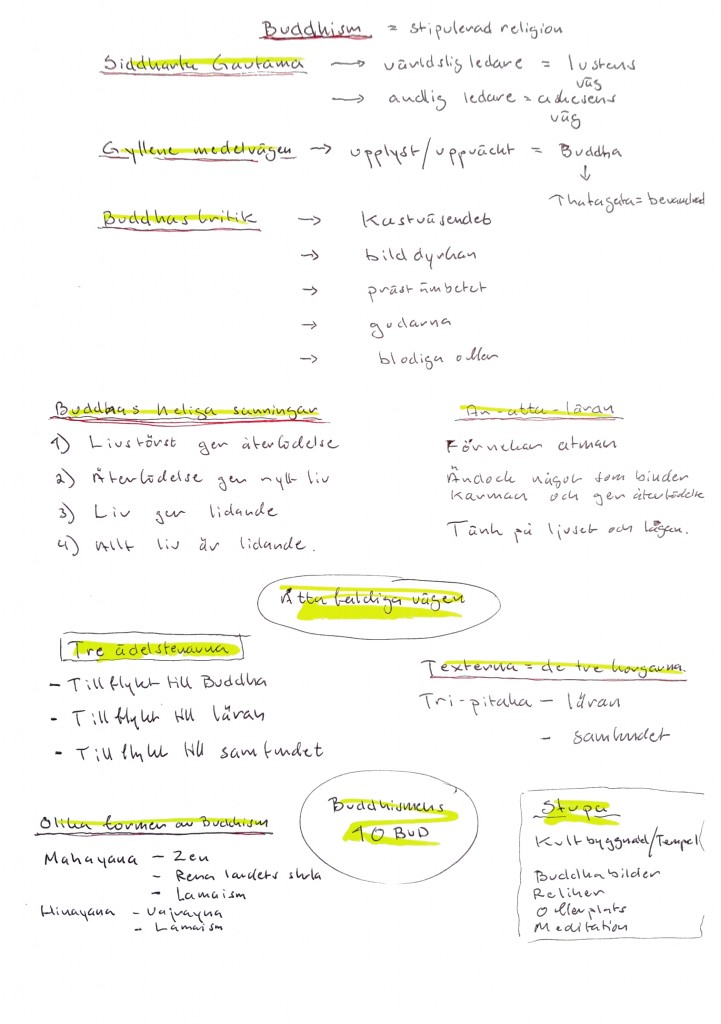 Buddhism = stipulerad religion
Siddharta Gautama → världslig ledare = lustens väg
→ andlig ledare = askesens väg
Gyllene medelvägen → upplyst/uppväckt = Buddha
↓
Thatagata =
Buddhas kritik → Kastväsendet
→ bilddyrkan
→ prästämbetet
→ gudarna
→ blodiga offer
Buddhas heliga sanningar
1) Livstörst ger återfödelse
2) Återfödelse ger nytt liv
3) Liv ger lidande
4) Allt liv är lidande.
An-atta-läran
Förnekar atman
Ändock något som binder
karman och ger återfödelse
Tänk på ljuset och lågan.
Åttafaldiga vägen
Tre ädelstenarna
- Tillflykt till Buddha
- Tillflykt till läran
- Tillflykt till samfundet
Texterna = de tre korgarna.
Tri-pitaka - läran
- samfundet
Olika former av Buddhism
Mahayana - Zen
- Rena landets skola
- Lamaism
Hinayana - Vajrayna
- Lamaism
Buddhismens
10 BUD
Stupa
Kultbyggnad/Tempel
Buddhabilder
Reliker
Offerplats
Meditation